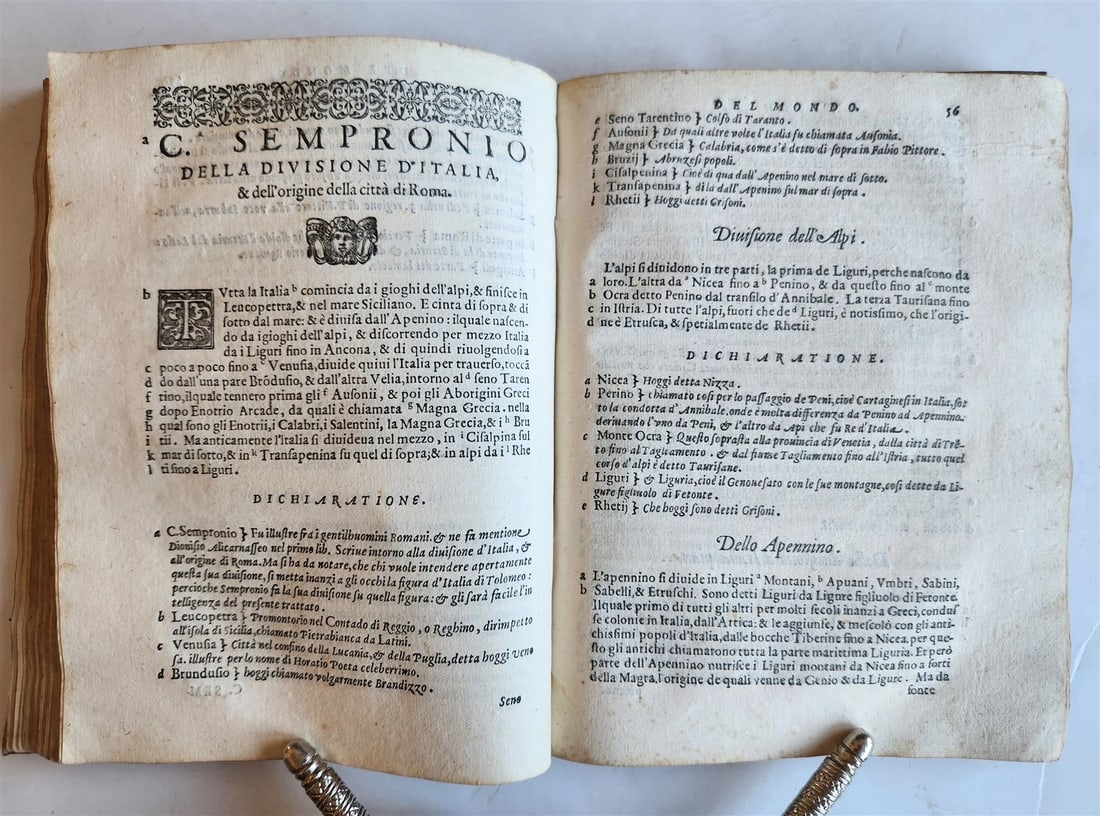 a C. SEMPRONIO
DELLA DIVISIONE D'ITALIA,
& dell'origine della città di Roma.
b TVtta la Italia b comincia da i gioghi dell'alpi, & finisce in
Leucopettra, & nel mare Siciliano. E cinta di sopra & di
sotto dal mare: & è diuisa dall'Apenino: ilquale nascen-
do da i gioghi dell'alpi, & discorrendo per mezzo Italia
da i Liguri fino in Ancona, & di quindi riuolgendosi a
c poco a poco fino a c Venusia, diuide quiui l'Italia per trauerso, toccā
d do dall'una pare Brōdusio, & dall'altra Velia, intorno al d seno Taren
f rino, ilquale tennero prima gli f Ausonii, & poi gli Aborigini Greci
g dopo Enotrio Arcade, da quali è chiamata g Magna Grecia. nella
h qual sono gli Enotrii, i Calabri, i Salentini, la Magna Grecia, & i h Bru
i tii. Ma anticamente l'Italia si diuideua nel mezzo, in i Cisalpina sul
k mar di sotto, & in k Transapenina su quel di sopra; & in alpi da i l Rhe
l ti fino a Liguri.
DICHIARATIONE.
a C. Sempronio } Fu illustre fra i gentilhuomini Romani. & ne fa mentione
Dionisio Alicarnasseo nel primo lib. Scriue intorno alla diuisione d'Italia, &
all'origine di Roma. Ma si ha da notare, che chi vuole intendere apertamente
questa sua diuisione, si metta inanzi a gli occhi la figura d'Italia di Tolomeo:
percioche Sempronio fa la sua diuisione su quella figura: & gli sarà facile l'in
telligenza del presente trattato.
b Leucopetra } Promontorio nel Contado di Reggio, o Reghino, dirimpetto
all'isola di Sicilia, chiamato Pietrabianca da Latini.
c Venusia } Città nel confino della Lucania, & della Puglia, detta hoggi veno
sa. illustre per lo nome di Horatio Poeta celeberrimo.
d Brundusio } hoggi chiamato volgarmente Brandizzo.
Seno
DEL MONDO. 56
e Seno Tarentino } Colfo di Taranto.
f Ausonii } Da quali altre volte l'Italia fu chiamata Ausonia.
g Magna Grecia } Calabria, come s'è detto di sopra in Fabio Pittore.
h Bruzij } Abruzesi popoli.
i Cisalpenina } Cioè di qua dall'Apenino nel mare di sotto.
k Transapenina } di la dall'Apenino sul mar di sopra.
l Rhetii } Hoggi detti Grisoni.
Diuisione dell'Alpi.
L'alpi si diuidono in tre parti, la prima de Liguri, perche nascono da
a loro. L'altra da a Nicea fino a b Penino, & da questo fino al c monte
b Ocra detto Penino dal transito d'Annibale. La terza Taurisana fino
c in Istria. Di tutte l'alpi, fuori che de d Liguri, è notissimo, che l'origi-
d ne è Etrusca, & spetialmente de Rhetii.
DICHIARATIONE.
a Nicea } Hoggi detta Nizza.
b Perino } chiamato cosi per lo passaggio de Peni, cioè Cartaginesi in Italia, sot
to la condotta d'Annibale. onde è molta differenza da Penino ad Apennino.
deriuando l'vno da Peni, & l'altro da Api che fu Re d'Italia.
c Monte Ocra } Questo soprasta alla prouincia di Venetia, dalla città di Trē-
to fino al Tagliamento. & dal fiume Tagliamento fino all'Istria, tutto quel
corso d'alpi è detto Taurisane.
d Liguri } & Liguria, cioè il Genouesato con le sue montagne, cosi dette da Li-
gure figliuolo di Fetonte.
e Rhetij } Che hoggi sono detti Grisoni.
Dello Apennino.
a L'apennino si diuide in Liguri a Montani, b Apuani, Vmbri, Sabini,
b Sabelli, & Etruschi. Sono detti Liguri da Ligure figliuolo di Fetonte.
Ilquale primo di tutti gli altri per molti secoli inanzi a Greci, condus
se colonie in Italia, dall'Attica: & le aggiunse, & mescolò con gli anti-
chissimi popoli d'Italia, dalle bocche Tiberine fino a Nicea. per que-
sto gli antichi chiamarono tutta la parte marittima Liguria. Et però
parte dell'Apennino nutrisce i Liguri montani da Nicea fino a fonti
della Magra, l'origine de quali venne da Genio & da Ligure. Ma da
fonte